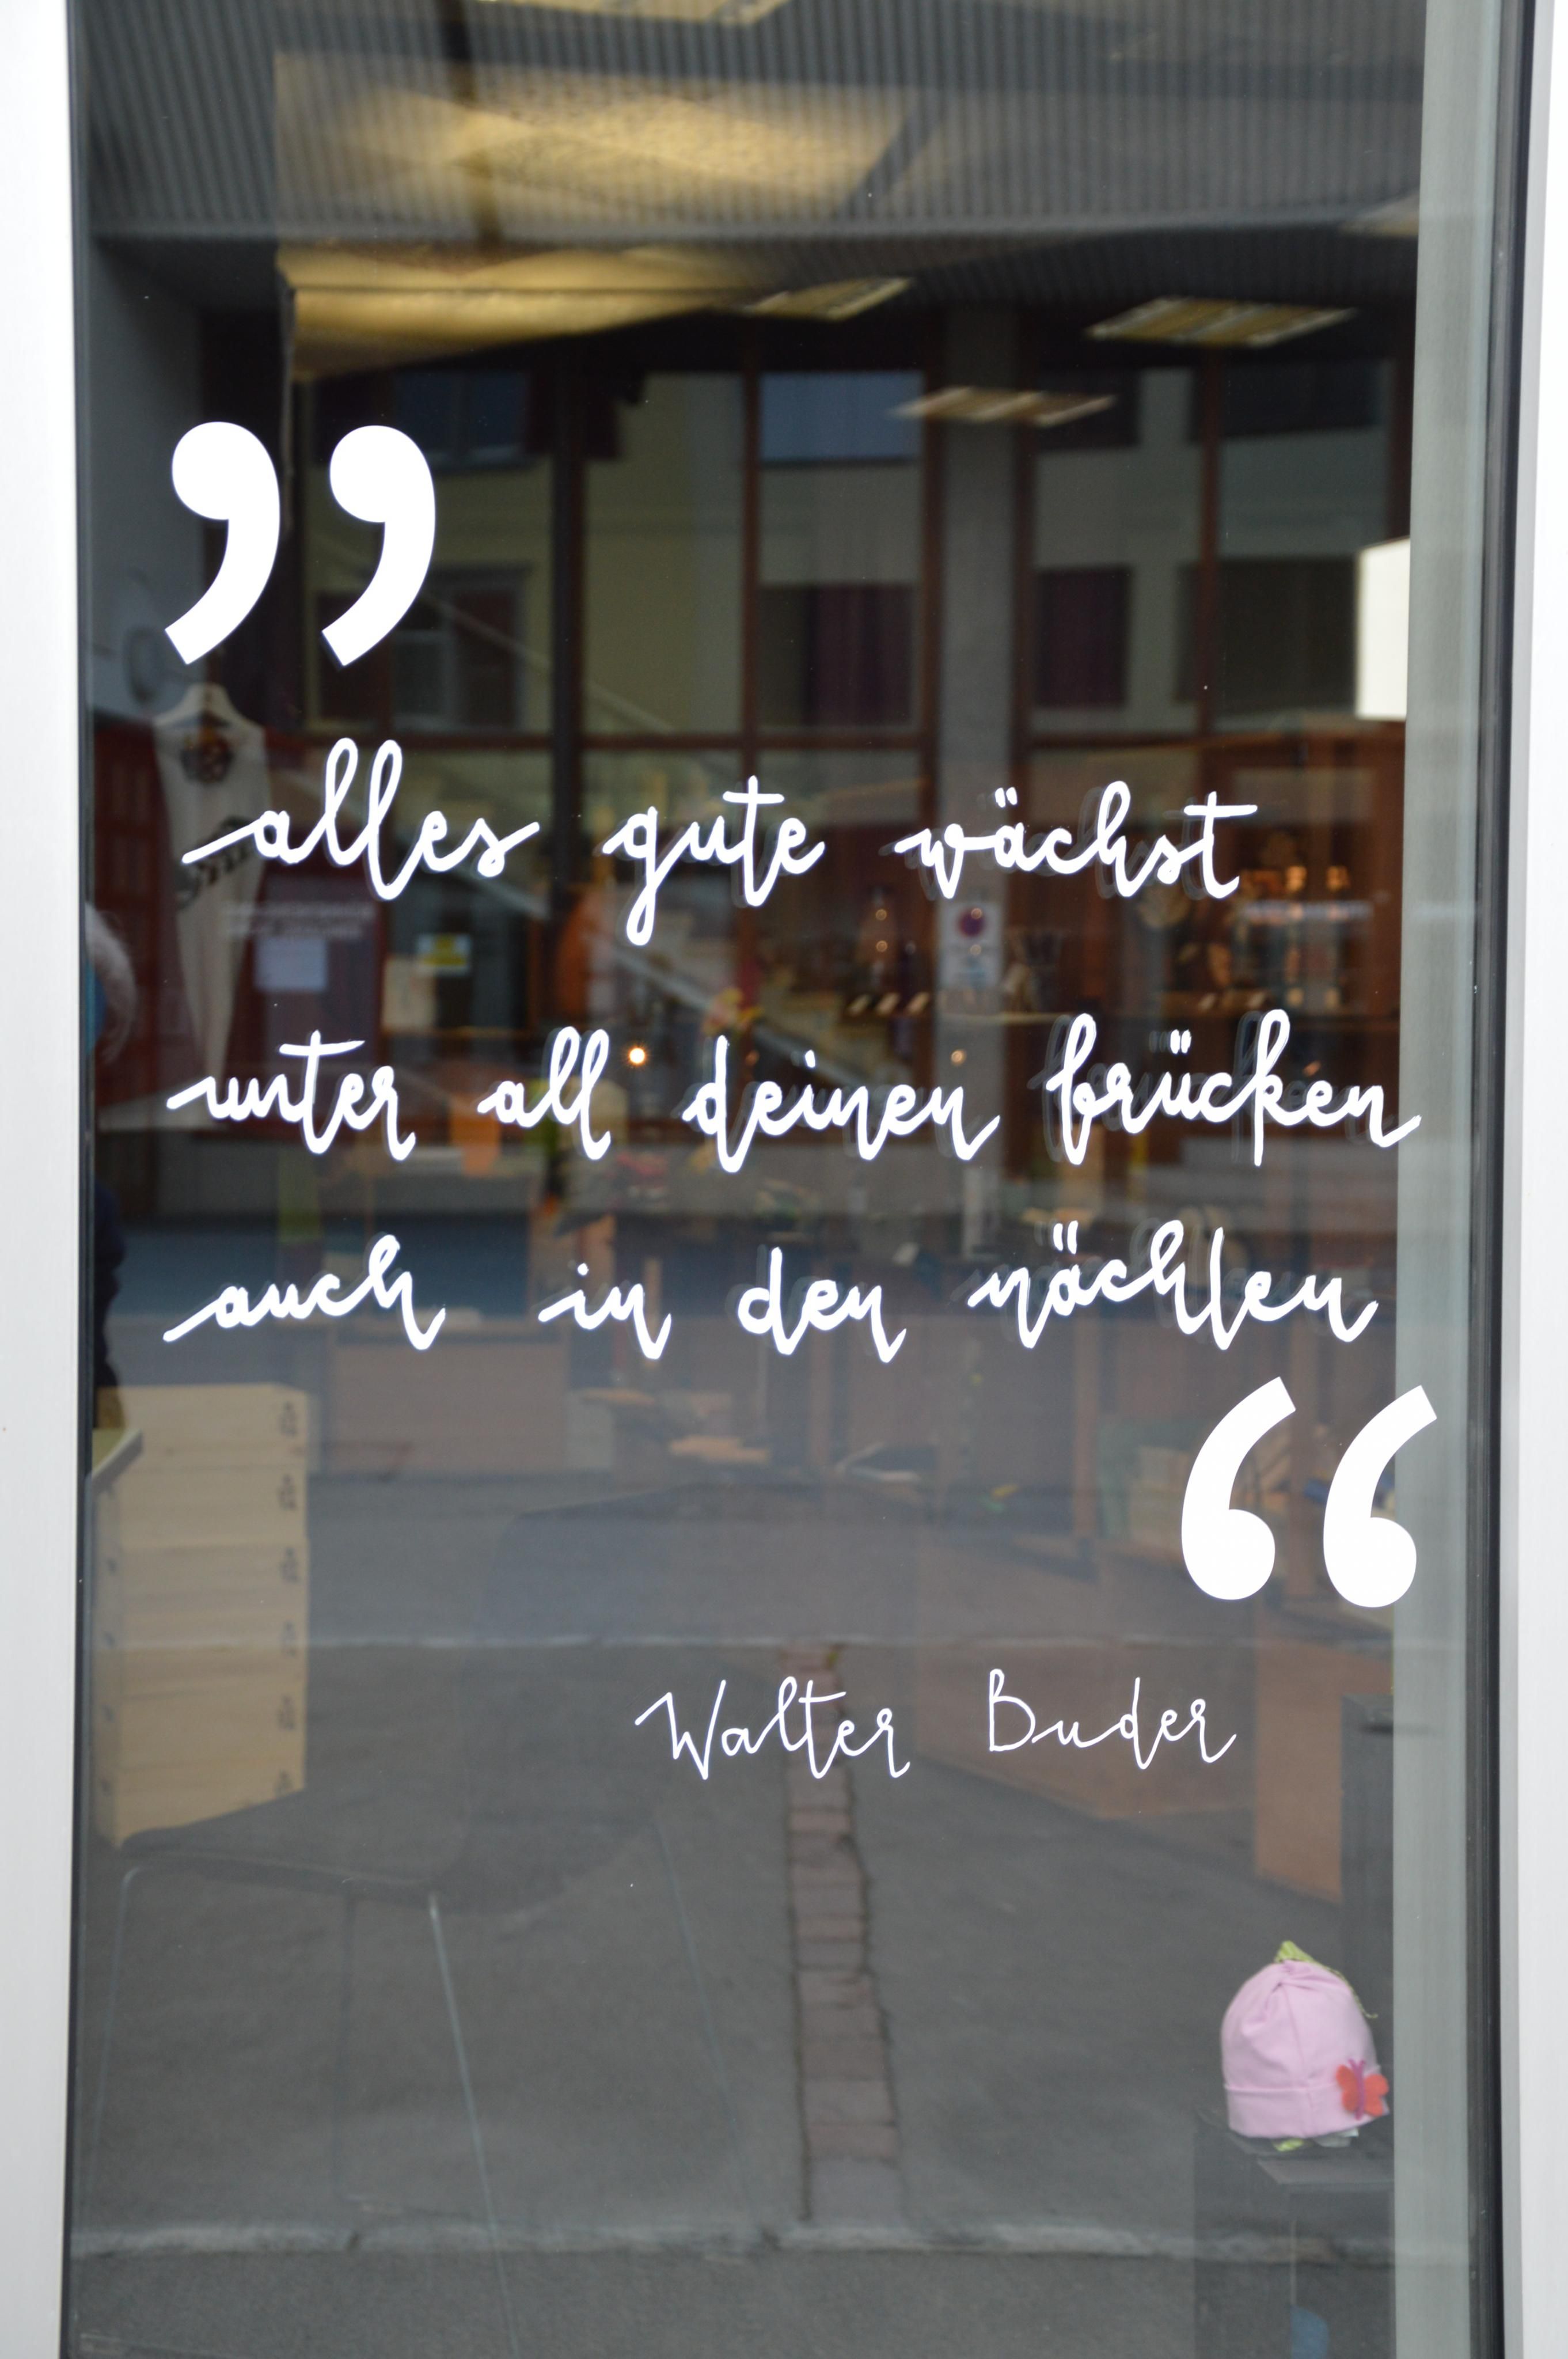 ”
alles gute wächst
unter all deinen brücken
auch in den nächten
“
Walter Buder